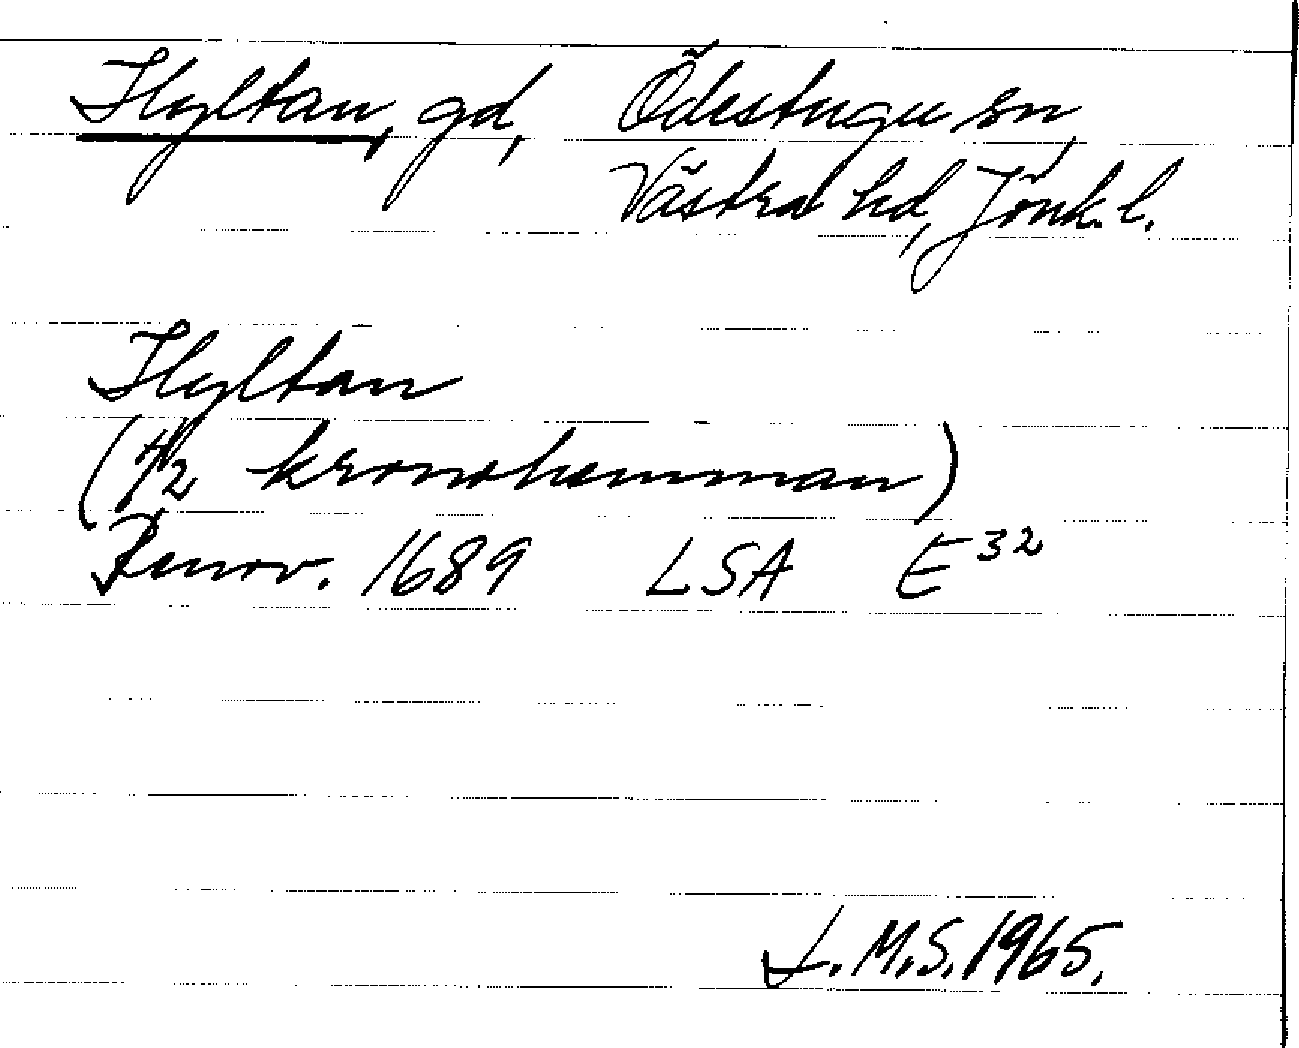 Hyltan, gd, Ödestugu sn,
Västra hd, Jönk. l.
Hyltan
(1/2 kronohemman)
Renov. 1689 LSA E 32
L.M.S. 1965.